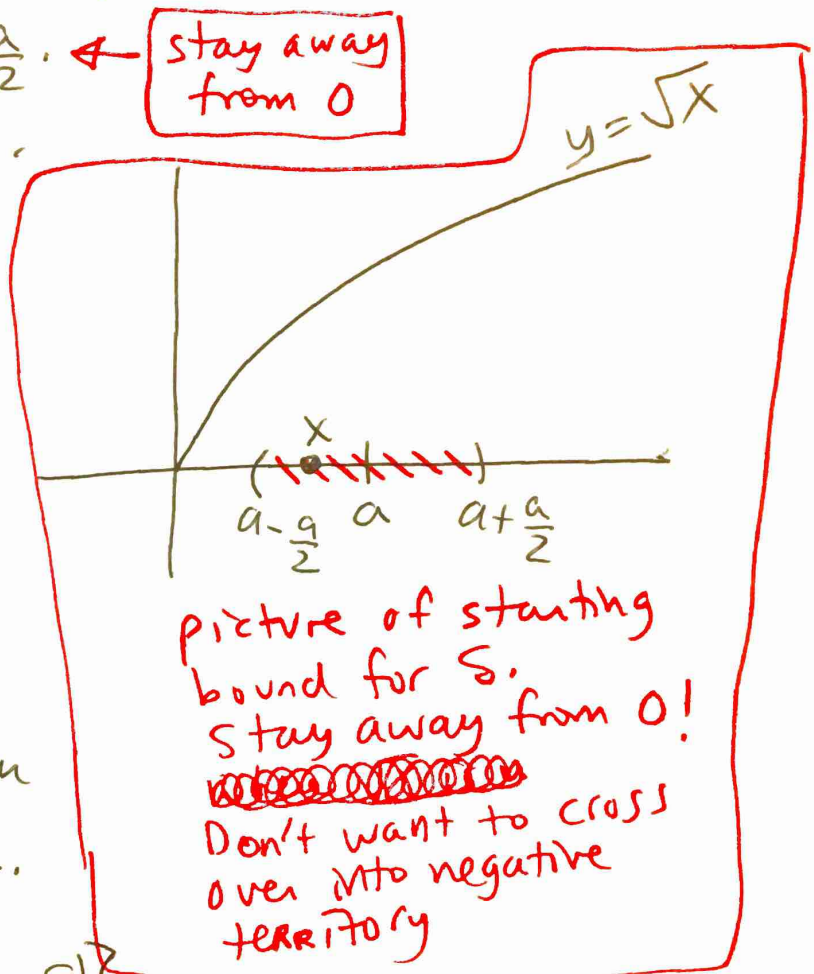 a/2. ← stay away
from 0
y = √x
x
a - a/2 a a + a/2
picture of starting
bound for δ.
Stay away from 0!
Don't want to cross
over into negative
territory